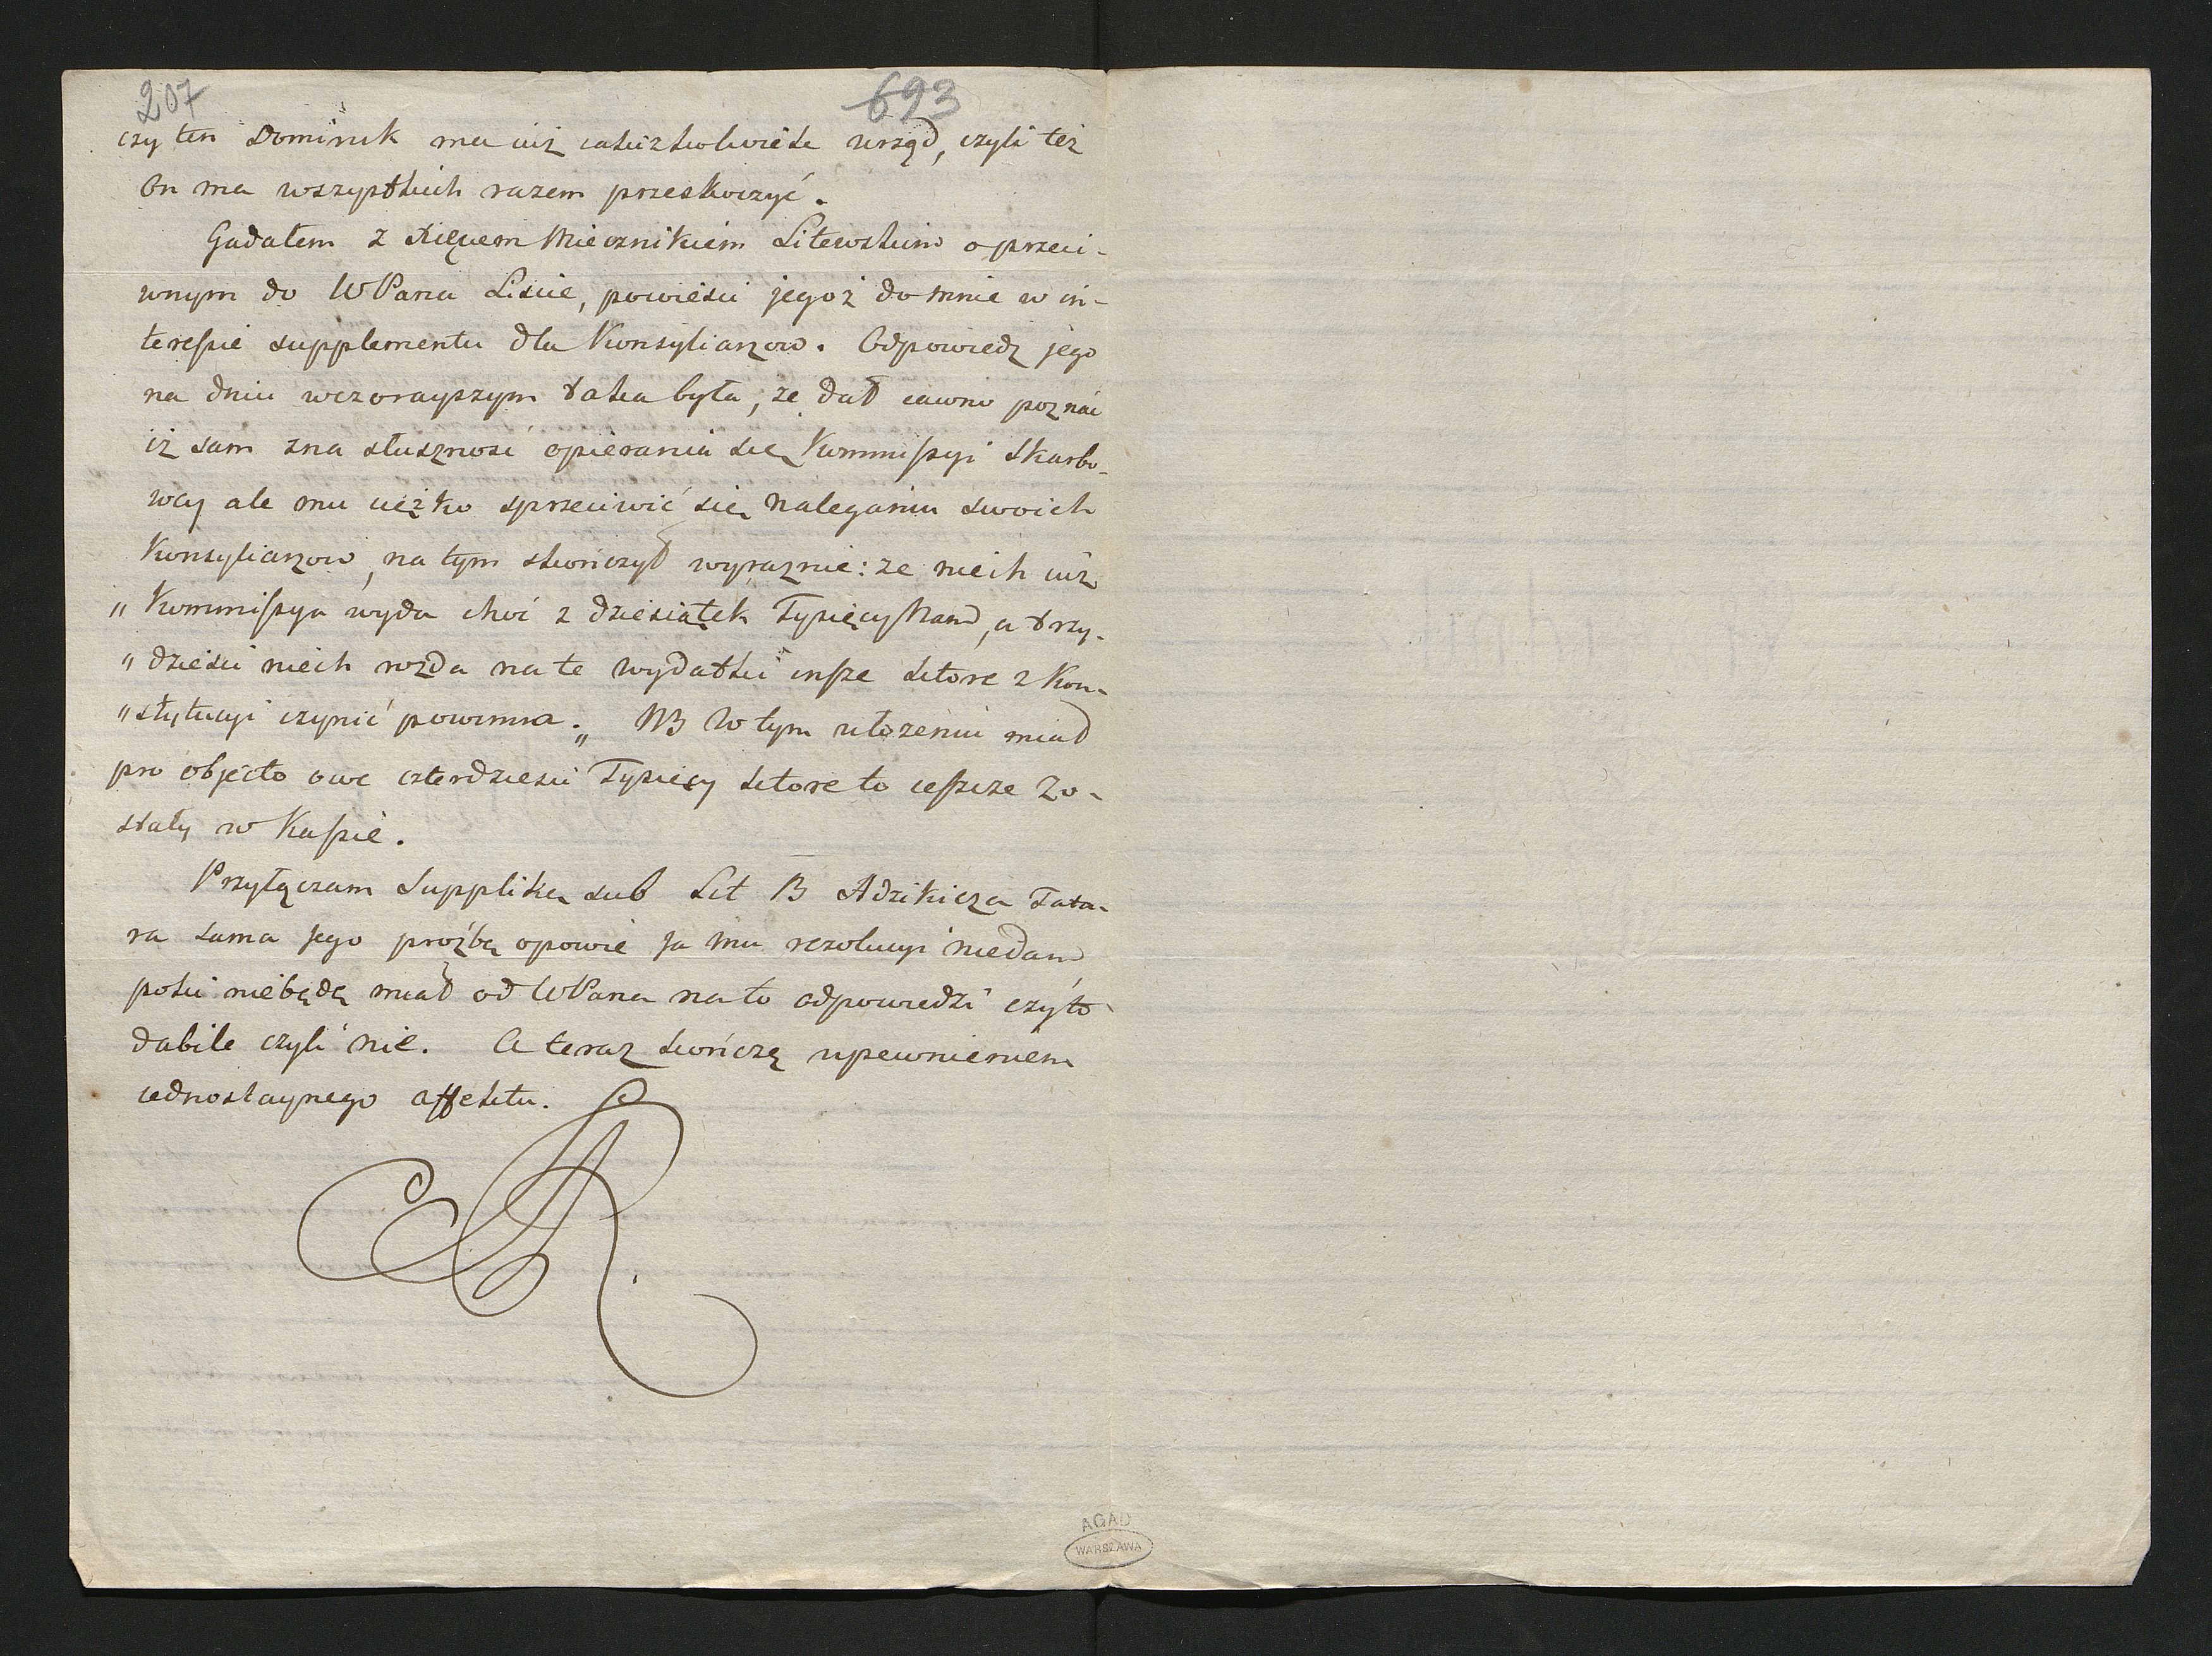 207 693
czy ten Dominik ma iuż iakiżkolwiek urząd, czyli też
on ma wszystkich razem przeskoczyć.
Gadałem z Xięciem Miecznikiem Litewskim o przeci-
wnym do WPana Liście, powieści jegoż do mnie w in-
teressie supplementu dla Konsyliarzow. Odpowiedz jego
na dniu wczorayszym taka była, że dał iawno poznać
iż sam zna słuszność opierania się Kommissyi Skarbo-
wey ale mu cięzko sprzeciwić się naleganiu swoich
Konsyliarzow, na tym skończył wyraznie: że niech iuż
„Kommissya wyda choć z dziesiątek Tysięcy Nam, a trzy-
„dzieści niech rozda na te wydatki insze ktore z Kon-
„stytucyi czynić powinna.„ NB W tym ułożeniu miał
pro objecto owe czterdzieści Tysięcy ktore to ieszcze zo-
stały w Kassie.
Przyłączam Supplikę sub Lit B Adzikicza Tata-
ra sama jego proźbę opowie ja mu rezolucyi niedam
poki niebędę miał od WPana na to odpowiedzi czy to
dabile czyli nie. A teraz kończę upewnieniem
iednostaynego affektu.
SAR.
AGAD
WARSZAWA